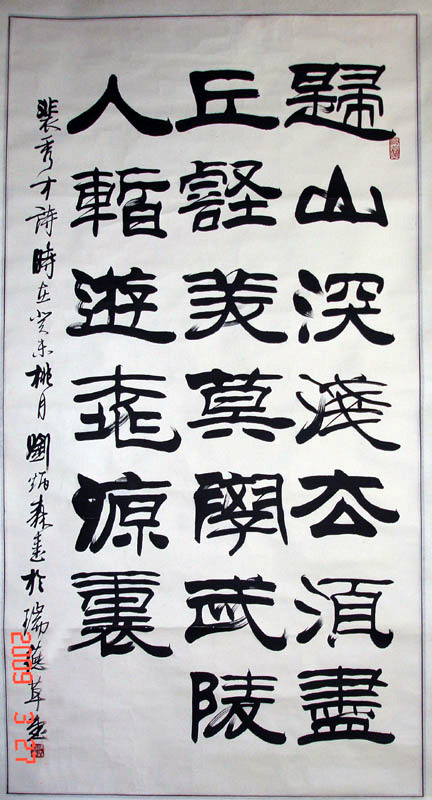 歸山深淺去須盡
丘壑美莫學武陵
人暫遊桃源裏
裴秀才詩時在癸未桃月劉炳森書於瑞草堂
2009 3 27